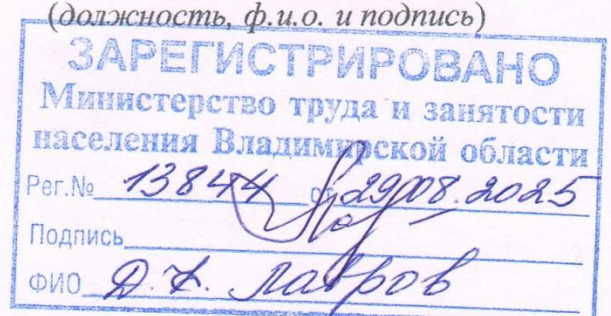 (должность, ф.и.о. и подпись)
ЗАРЕГИСТРИРОВАНО
Министерство труда и занятости
населения Владимирской области
Рег.№ 13844 от 29.08.2025
Подпись
ФИО Д. Лавров